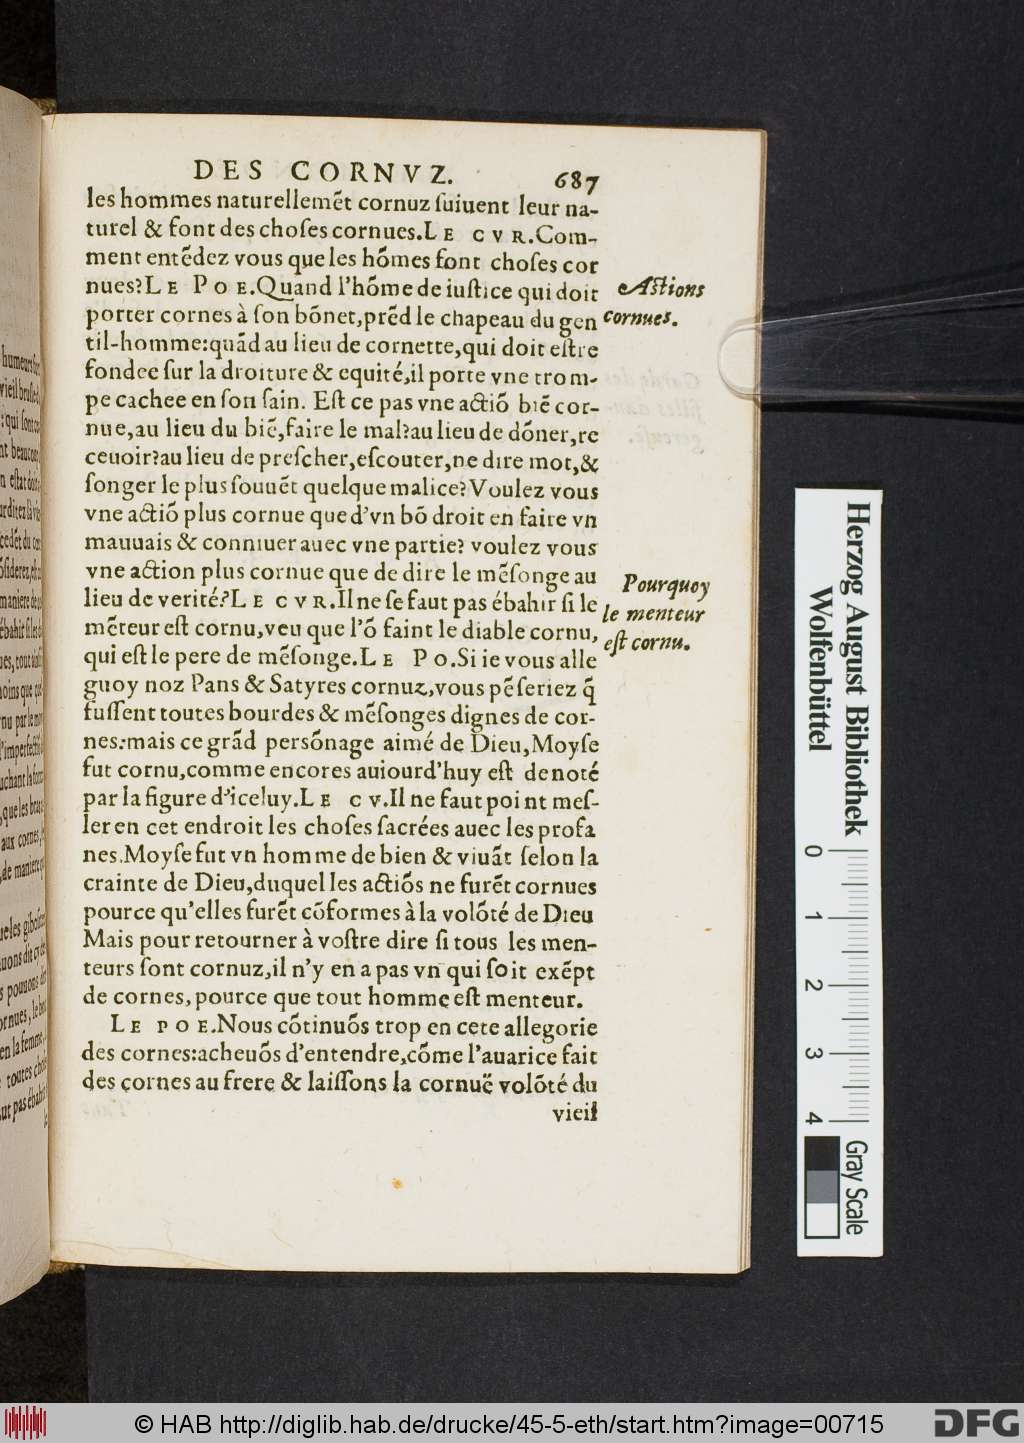 DES CORNVZ. 687
les hommes naturellemẽt cornuz ſuiuent leur na-
turel & font des choſes cornues.LE CVR.Com-
ment entẽdez vous que les hõmes font choſes cor
nues?LE POE.Quand l'hõme de iuſtice qui doit
porter cornes à ſon bõnet,prẽd le chapeau du gen
til-homme:quãd au lieu de cornette,qui doit eſtre
fondee ſur la droiture & equité,il porte vne trom-
pe cachee en ſon ſain. Eſt ce pas vne actiõ biẽ cor-
nue,au lieu du biẽ,faire le mal?au lieu de dõner,re
ceuoir?au lieu de preſcher,eſcouter,ne dire mot,&
ſonger le plus ſouuẽt quelque malice? Voulez vous
vne actiõ plus cornue que d'vn bõ droit en faire vn
mauuais & conniuer auec vne partie? voulez vous
vne action plus cornue que de dire le mẽſonge au
lieu de verité?LE CVR.Il ne ſe faut pas ébahir ſi le
mẽteur eſt cornu,veu que l'õ faint le diable cornu,
qui eſt le pere de mẽſonge.LE PO.Si ie vous alle
guoy noz Pans & Satyres cornuz,vous pẽſeriez q̃
fuſſent toutes bourdes & mẽſonges dignes de cor-
nes:mais ce grãd persõnage aimé de Dieu,Moyſe
fut cornu,comme encores auiourd'huy eſt denoté
par la figure d'iceluy.LE CV.Il ne faut point meſ-
ler en cet endroit les choſes ſacrées auec les profa
nes.Moyſe fut vn homme de bien & viuãt ſelon la
crainte de Dieu,duquel les actiõs ne furẽt cornues
pource qu'elles furẽt cõformes à la volõté de Dieu
Mais pour retourner à voſtre dire ſi tous les men-
teurs ſont cornuz,il n'y en a pas vn qui ſoit exẽpt
de cornes, pource que tout homme eſt menteur.
LE POE.Nous cõtinuõs trop en cete allegorie
des cornes:acheuõs d'entendre,cõme l'auarice fait
des cornes au frere & laiſſons la cornuë volõté du
vieil
Actions
cornues.
Pourquoy
le menteur
eſt cornu.
Herzog August Bibliothek
Wolfenbüttel
0 1 2 3 4
Gray Scale
© HAB http://diglib.hab.de/drucke/45-5-eth/start.htm?image=00715
DFG